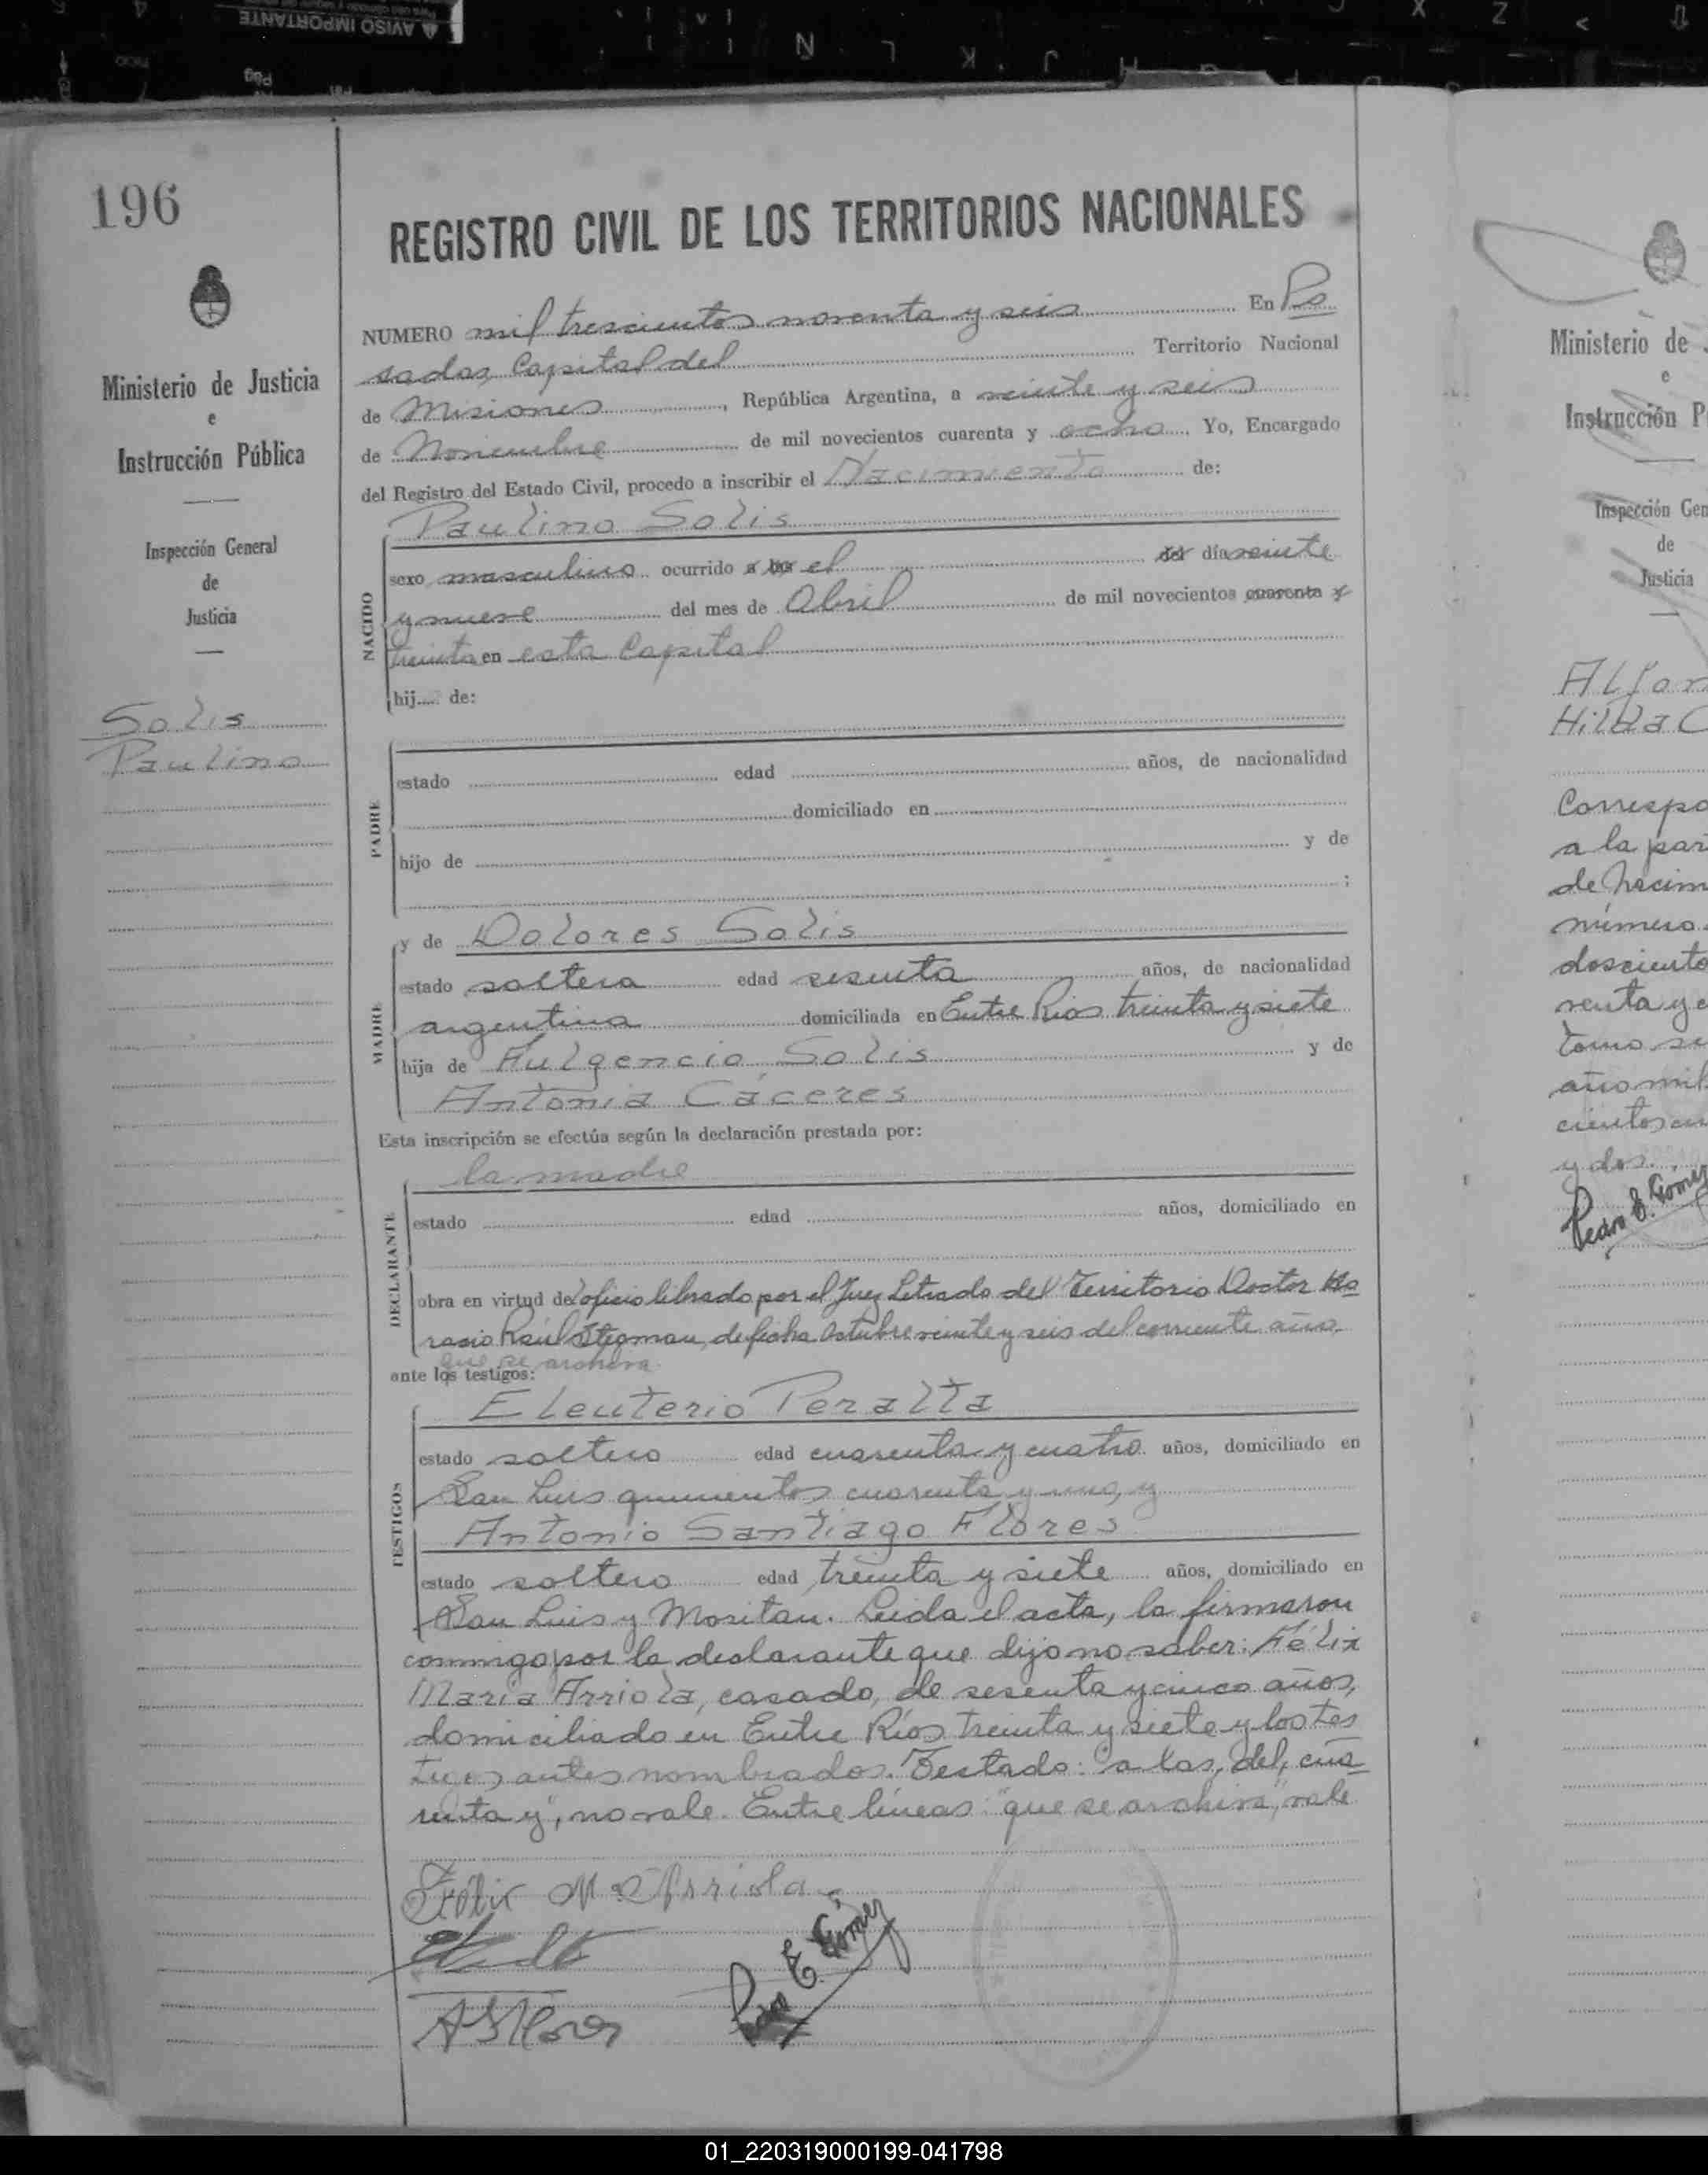 AVISO IMPORTANTE
196
Ministerio de Justicia
e
Instrucción Pública
Inspección General
de
Justicia
Solis
Paulino
REGISTRO CIVIL DE LOS TERRITORIOS NACIONALES
NUMERO mil trescientos noventa y seis En Po
sadas, Capital del Territorio Nacional
de Misiones, República Argentina, a veinte y seis
de Noviembre de mil novecientos cuarenta y ocho. Yo, Encargado
del Registro del Estado Civil, procedo a inscribir el Nacimiento de:
Paulino Solis
NACIDO
sexo masculino ocurrido a las el del día veinte
y nueve del mes de Abril de mil novecientos cuarenta y
treinta en esta Capital
hij.... de:
PADRE
estado edad años, de nacionalidad
domiciliado en
hijo de y de
;
MADRE
y de Dolores Solis
estado soltera edad sesenta años, de nacionalidad
argentina domiciliada en Entre Rios treinta y siete
hija de Fulgencio Solis y de
Antonia Cáceres
Esta inscripción se efectúa según la declaración prestada por:
la madre
DECLARANTE
estado edad años, domiciliado en
obra en virtud de oficio librado por el Juez Letrado del Territorio Doctor Ho
racio Raúl Stegman, de fecha Octubre veinte y seis del corriente año,
que se archiva
ante los testigos:
TESTIGOS
Eleuterio Peralta
estado soltero edad cuarenta y cuatro años, domiciliado en
San Luis quinientos cuarenta y uno, y
Antonio Santiago Flores
estado soltero edad treinta y siete años, domiciliado en
San Luis y Moritan. Leida el acta, la firmaron
conmigo por la declarante que dijo no saber: Félix
Maria Arriola, casado, de sesenta y cinco años,
domiciliado en Entre Ríos treinta y siete y los tes
tigos antes nombrados. Testado: "a las, del, cua
renta y", no vale. Entre líneas: "que se archiva", vale
Felix M. Arriola
A S Flores
Pedro E. Gómez
Ministerio de
e
Instrucción P
Inspección Gen
de
Justicia
Alfon
Hilda C
Correspo
a la par
de Nacim
número
doscient
renta y
tomo
año mil
cientos cu
y dos.
Pedro E. Gómez
01_220319000199-041798